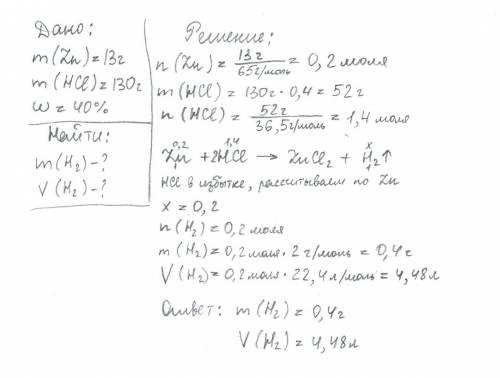 Дано:
m(Zn)=13г
m(HCl)=130г
ω=40%
Найти:
m(H₂)-?
V(H₂)-?
Решение:
n(Zn)=13г/65г/моль=0,2 моля
m(HCl)=130г·0,4=52г
n(HCl)=52г/36,5г/моль=1,4 моля
0,2 1,4 x
Zn+2HCl→ZnCl₂+H₂↑
1 1
HCl в избытке, рассчитываем по Zn
x=0,2
n(H₂)=0,2моля
m(H₂)=0,2моля·2г/моль=0,4г
V(H₂)=0,2моля·22,4л/моль=4,48л
Ответ: m(H₂)=0,4г
V(H₂)=4,48л